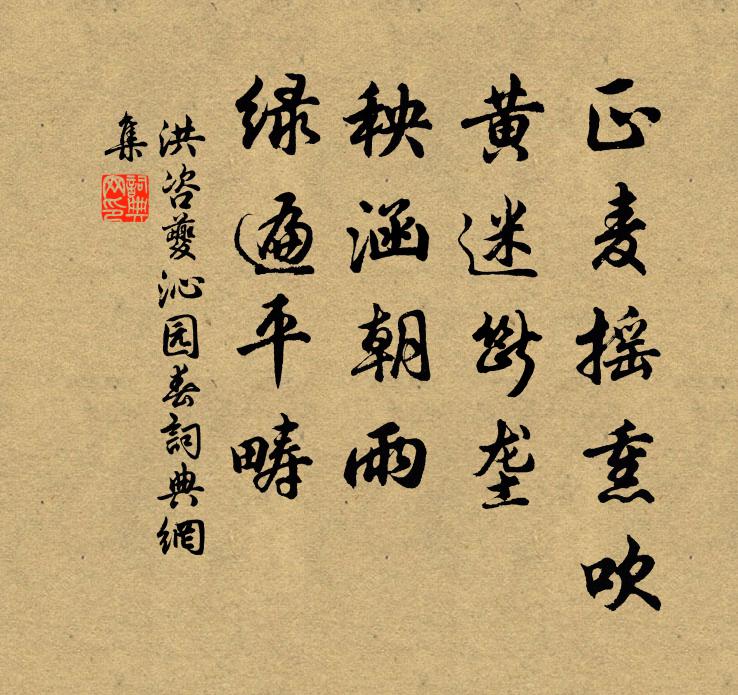 正麦摇熏吹
黄迷断垄
秧涵朝雨
绿遍平畴
洪咨夔沁园春詞典網
集
詞典
网印